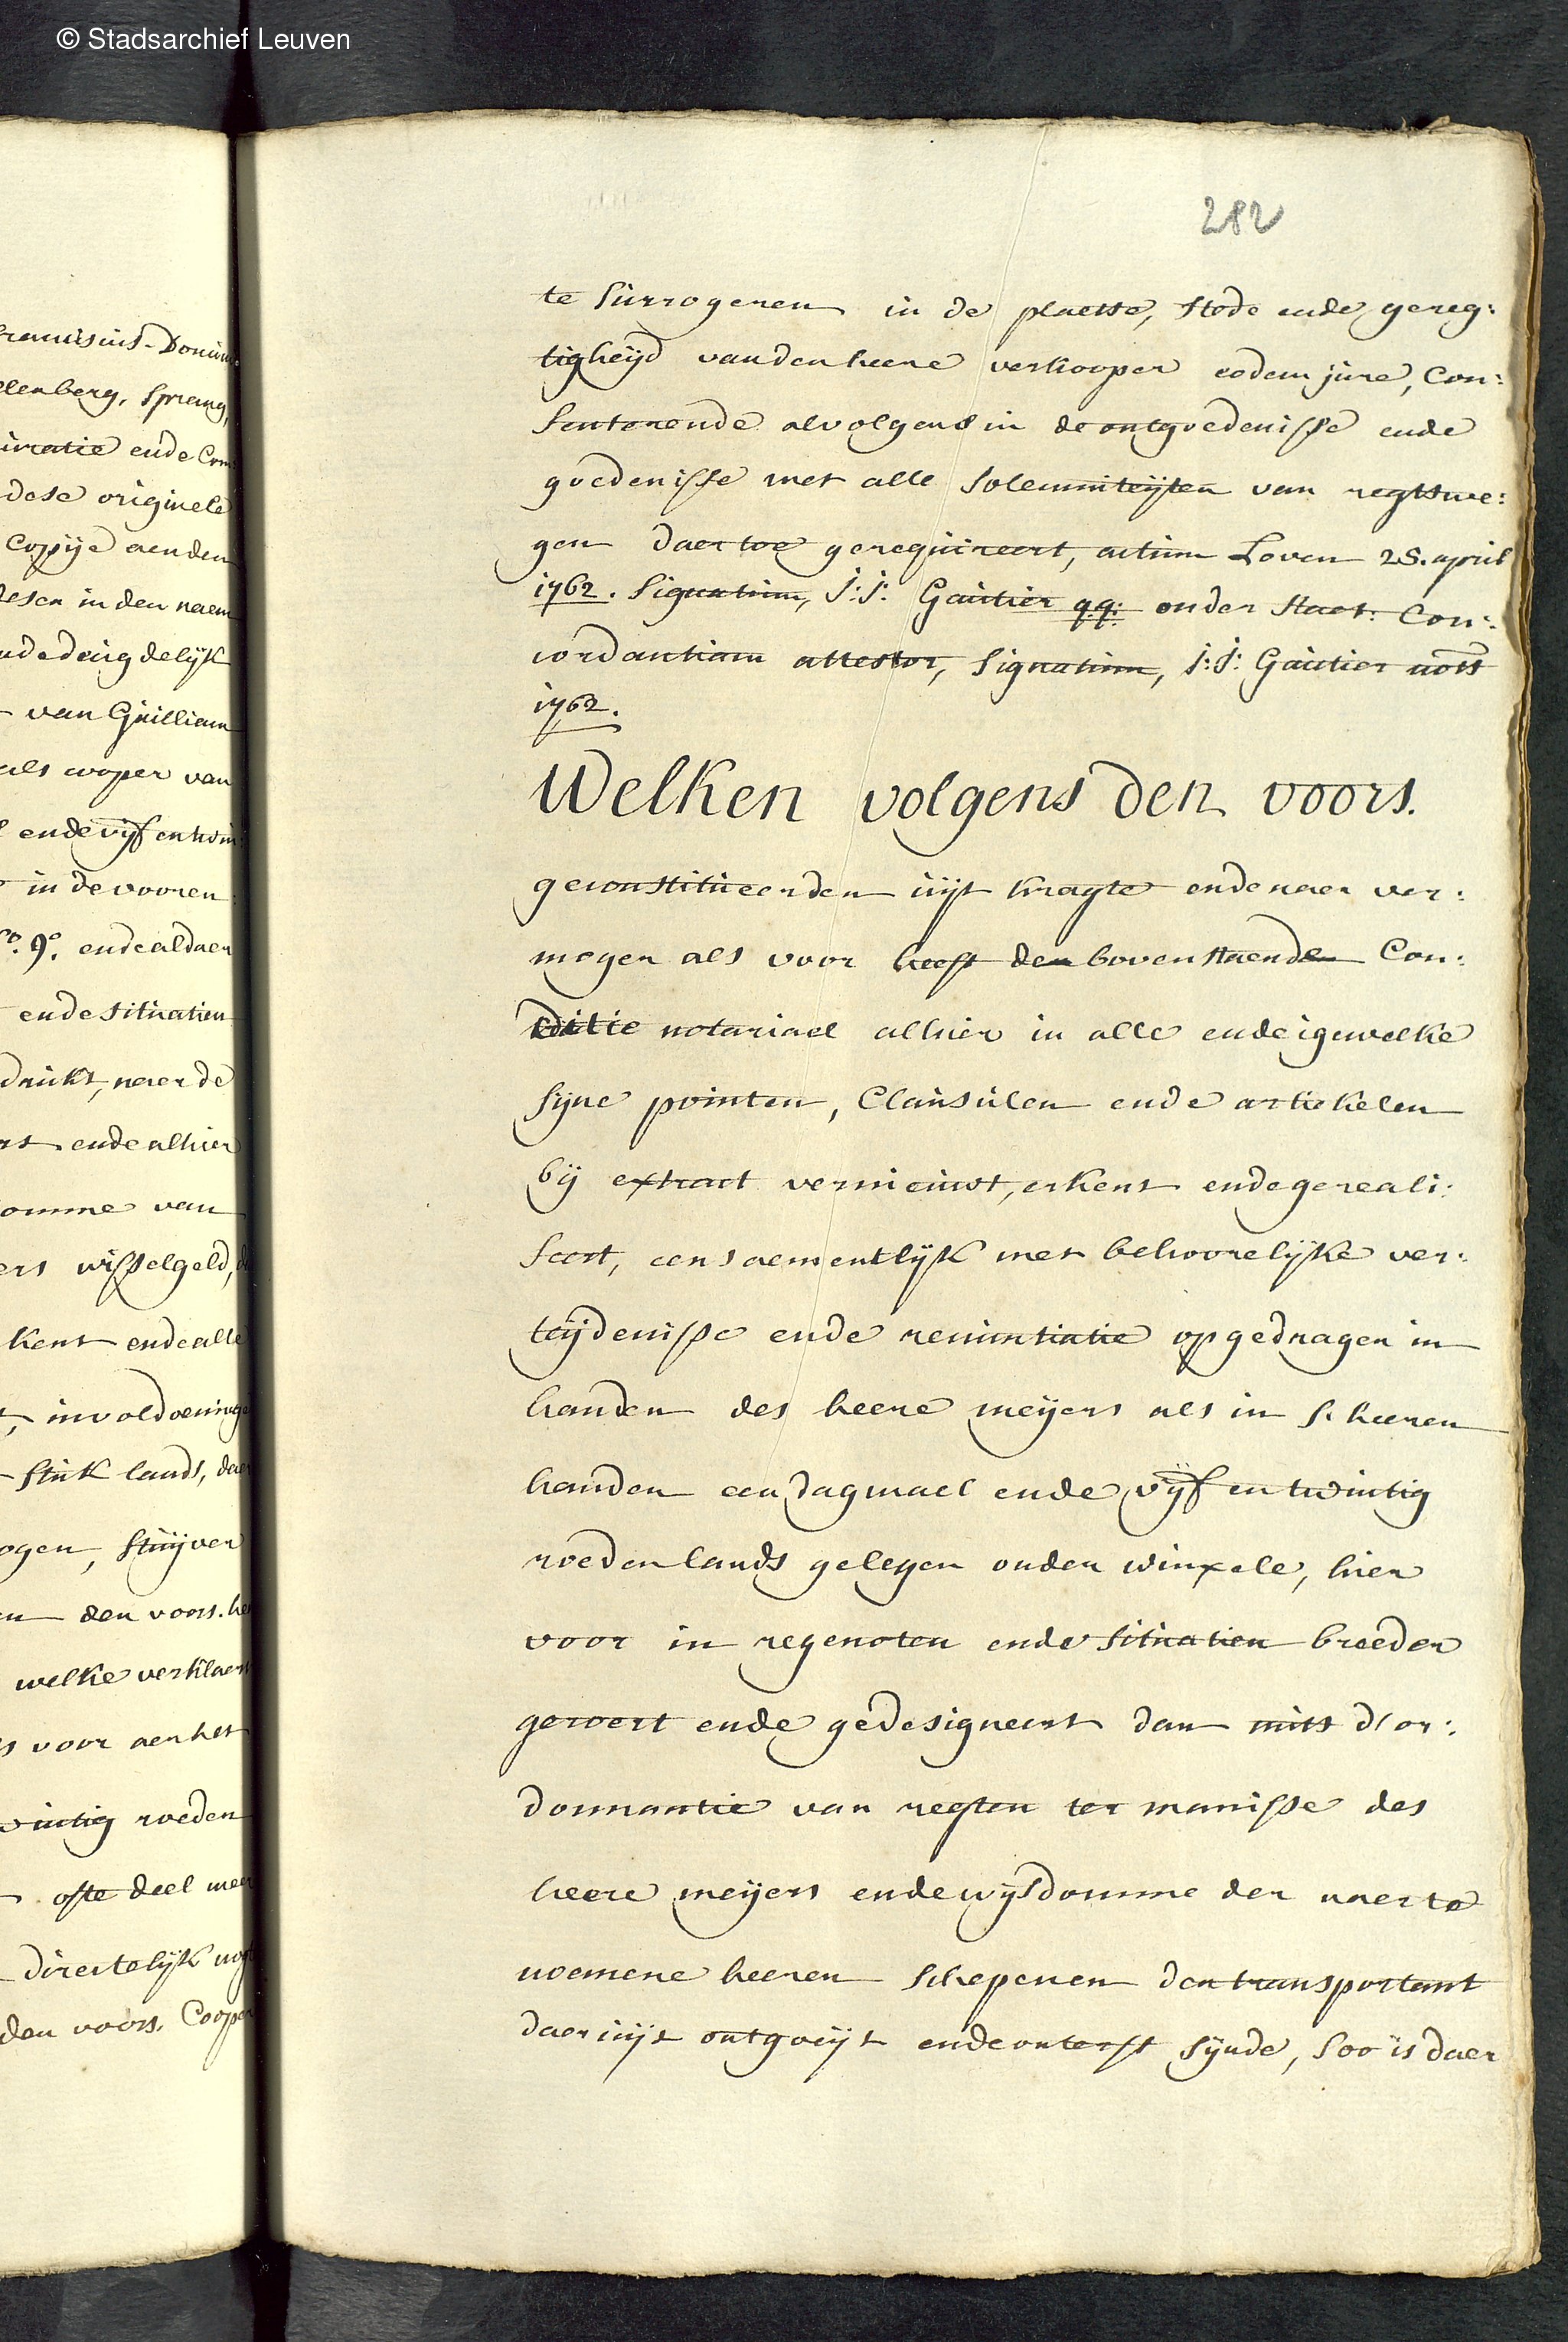 © Stadsarchief Leuven
282
te surrogeren in de plaetse, stede ende gereg:
tigheijd vanden heere verkooper eodem jure, con:
senterende alvolgens in de ontgoedenisse ende
goedenisse met alle solemniteijten van regtswe:
gen daertoe gerequireert, actum Loven 28. april
1762. signatum, J: J: Gautier q.q: onder staet: Con:
cordantiam attestor, signatum, j: J: Gautier nots
1762.
Welken volgens den voors.
geconstitueerden uijt kragte ende naer ver:
mogen als voor heeft den bovenstaende Con:
ditie notariael alhier in alle ende igewelke
sijne pointen, Clausulen ende artikelen
bij extract vernieuwt, erkent ende gereali:
seert, een saementlijk met behoorelijke ver:
teijdenisse ende renuntiatie opgedragen in
handen des heere meijers als in s'heeren
handen een dagmael ende vijf en twintig
roeden lands gelegen onder winxele, hier
voor in regenoten ende situatien breeder
geroert ende gedesigneert dan mits d'or:
donnantie van regten ter manisse des
heere meijers ende wijsdomme der naer te
noemene heeren schepenen den transportant
daer uijt ontgoeijt ende onterft sijnde, soo is daer
franciscus-Domini
elenberg, sprang,
uratie ende Com
dese originele
Copije aen den
desen in den naem
ende deugdelijk
van Guilliam
als cooper van
ende vijf en twin:
in de vooren
9º. ende aldaer
ende situatien
drukt, naer de
ende alhier
omme van
ers wisselgeld, d
kent ende alle
, in voldoeninge
stuk lands, daer
ogen, stuijver
den voors. he
welke verklaer
s voor aen het
wintig roeden
ofte deel meer
directelijk nog
den voors. Cooper